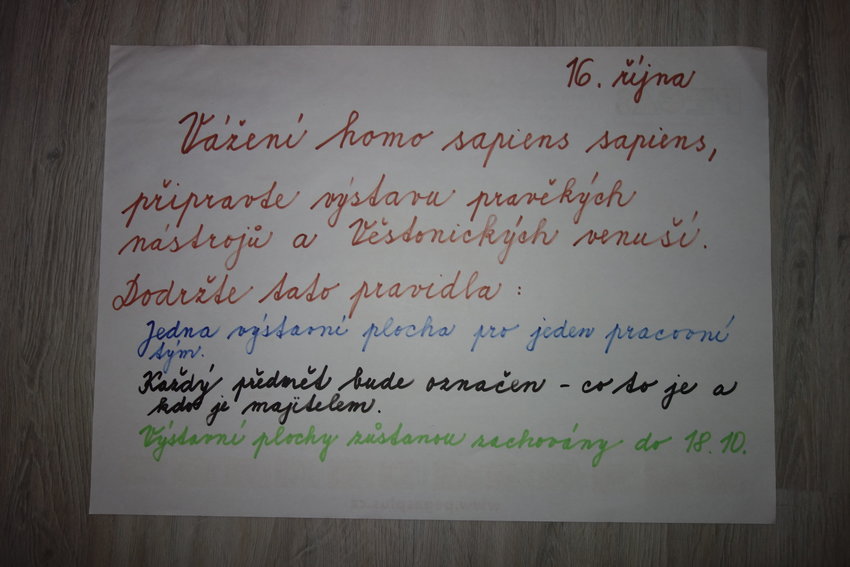 16. října
Vážení homo sapiens sapiens,
připravte výstavu pravěkých
nástrojů a Věstonických venuší.
Dodržte tato pravidla:
Jedna výstavní plocha pro jeden pracovní
tým.
Každý předmět bude označen - co to je a
kdo je majitelem.
Výstavní plochy zůstanou zachovány do 18.10.